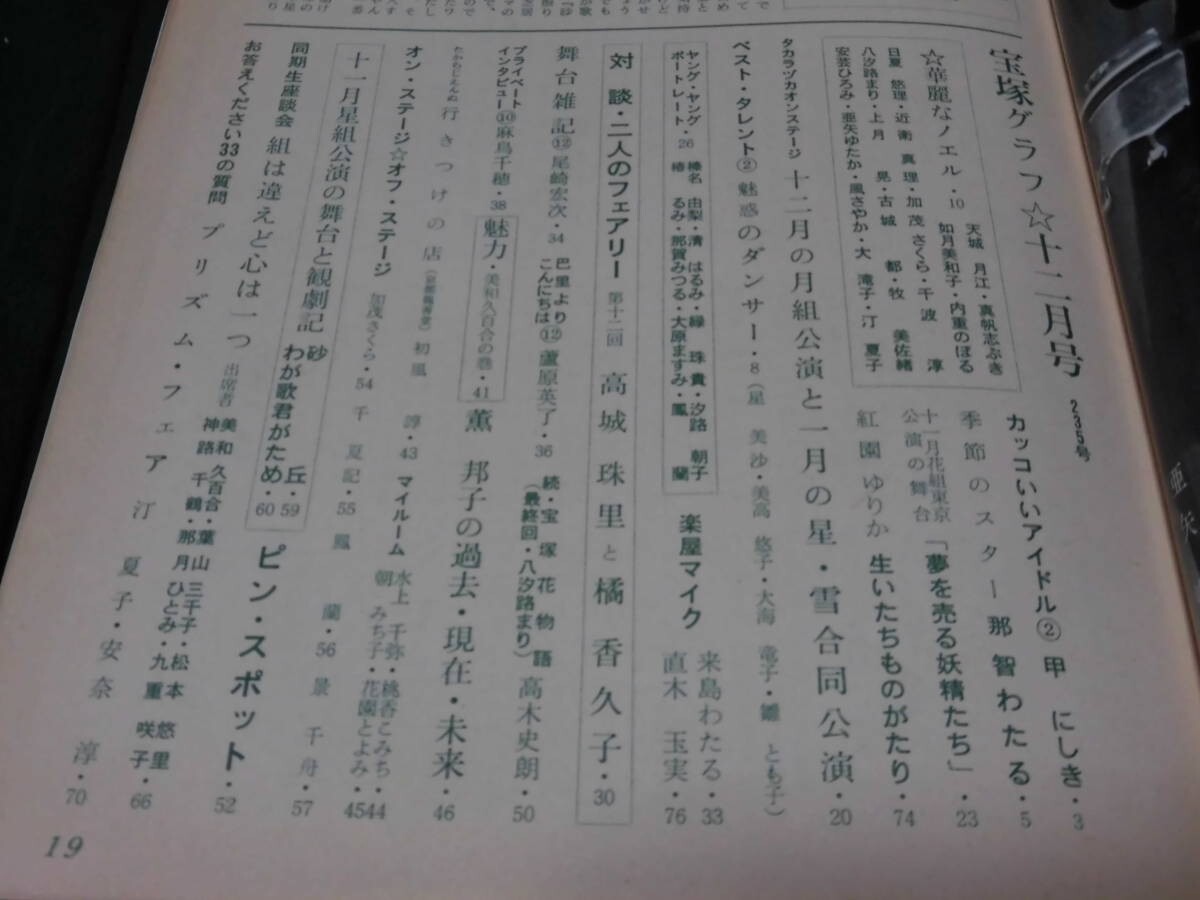 宝塚グラフ☆十二月号 235号
カッコいいアイドル② 甲 にしき・3
季節のスター 那智わたる・5
☆華麗なノエル・10
天城 月江・真帆志ぶき
如月美和子・内重のぼる
日夏 悠理・近衛 真理・加茂さくら・千波 淳
八汐路まり・上月 晃・古城 都・牧 美佐緒
安芸ひろみ・亜矢ゆたか・風さやか・大 滝子・汀 夏子
十一月花組東京公演の舞台 「夢を売る妖精たち」・23
紅園ゆりか 生いたちものがたり・74
タカラヅカオンステージ 十二月の月組公演と一月の星・雪合同公演・20
ベスト・タレント② 魅惑のダンサー・8 (星 美沙・美高 悠子・大海 竜子・雛 とも子)
ヤング・ヤングポートレート・26
榛名 由梨・清 はるみ・緑 珠貴・汐路 朝子
椿 るみ・那賀みつる・大原ますみ・鳳 蘭
楽屋マイク
来島わたる・33
直木 玉実・76
対談・二人のフェアリー 第十二回 高城珠里と橘香久子・30
舞台雑記⑫ 尾崎宏次・34
巴里よりこんにちは⑫ 蘆原英了・36
続・宝塚花物語(最終回・八汐路まり) 高木史朗・50
プライベートインタビュー⑩ 麻鳥千穂・38
魅力・美和久百合の巻・41
薫 邦子の過去・現在・未来・46
たからじぇんぬ 行きつけの店 初風 諄・43
マイルーム
水上 千弥・桃香こみち・44
朝 みち子・花園とよみ・45
オン・ステージ☆オフ・ステージ 加茂さくら・54 千 夏記・55 鳳 蘭・56 景 千舟・57
十一月星組公演の舞台と観劇記
砂 丘・59
わが歌君がため・60
ピン・スポット・52
同期生座談会 組は違えど心は一つ
出席者 美和 久百合・葉山 三千子・松本 悠里
神路 千鶴・那月 ひとみ・九重 咲子・66
お答えください33の質問 プリズム・フェア 汀 夏子・安奈 淳・70
19
亜矢